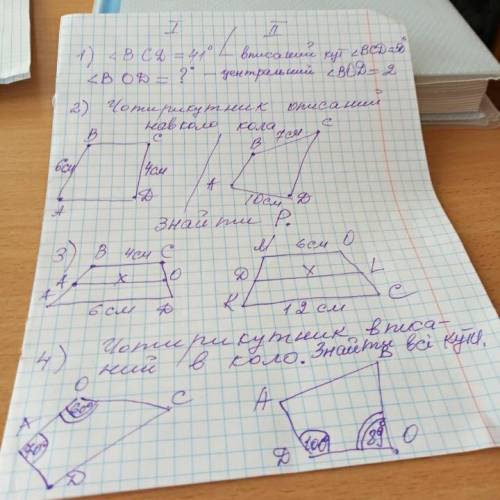 I / II
1) ∠BCD = 41° / — вписаний кут ∠BCD=
∠BOD = ?° — центральний ∠BOD = ?
2) Чотирикутник описаний
навколо кола
B C 7см C
6см 4см B
A D A 10см D
Знайти P.
3) B 4см C M 6см O
A x O D x L
A 6см D K 12см C
4) Чотирикутник вписа-
ний в коло. Знайти всі кути.
O C B
A 60° A
70° 100° 89°
D D O